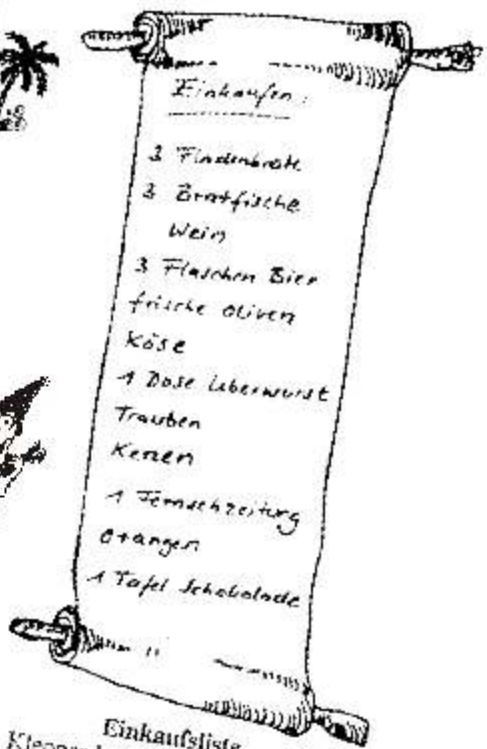 Einkaufen:
3 Fladenbrote
3 Bratfische
Wein
3 Flaschen Bier
frische Oliven
Käse
1 Dose Leberwurst
Trauben
Kerzen
1 Fernsehzeitung
Orangen
1 Tafel Schokolade
Einkaufsliste